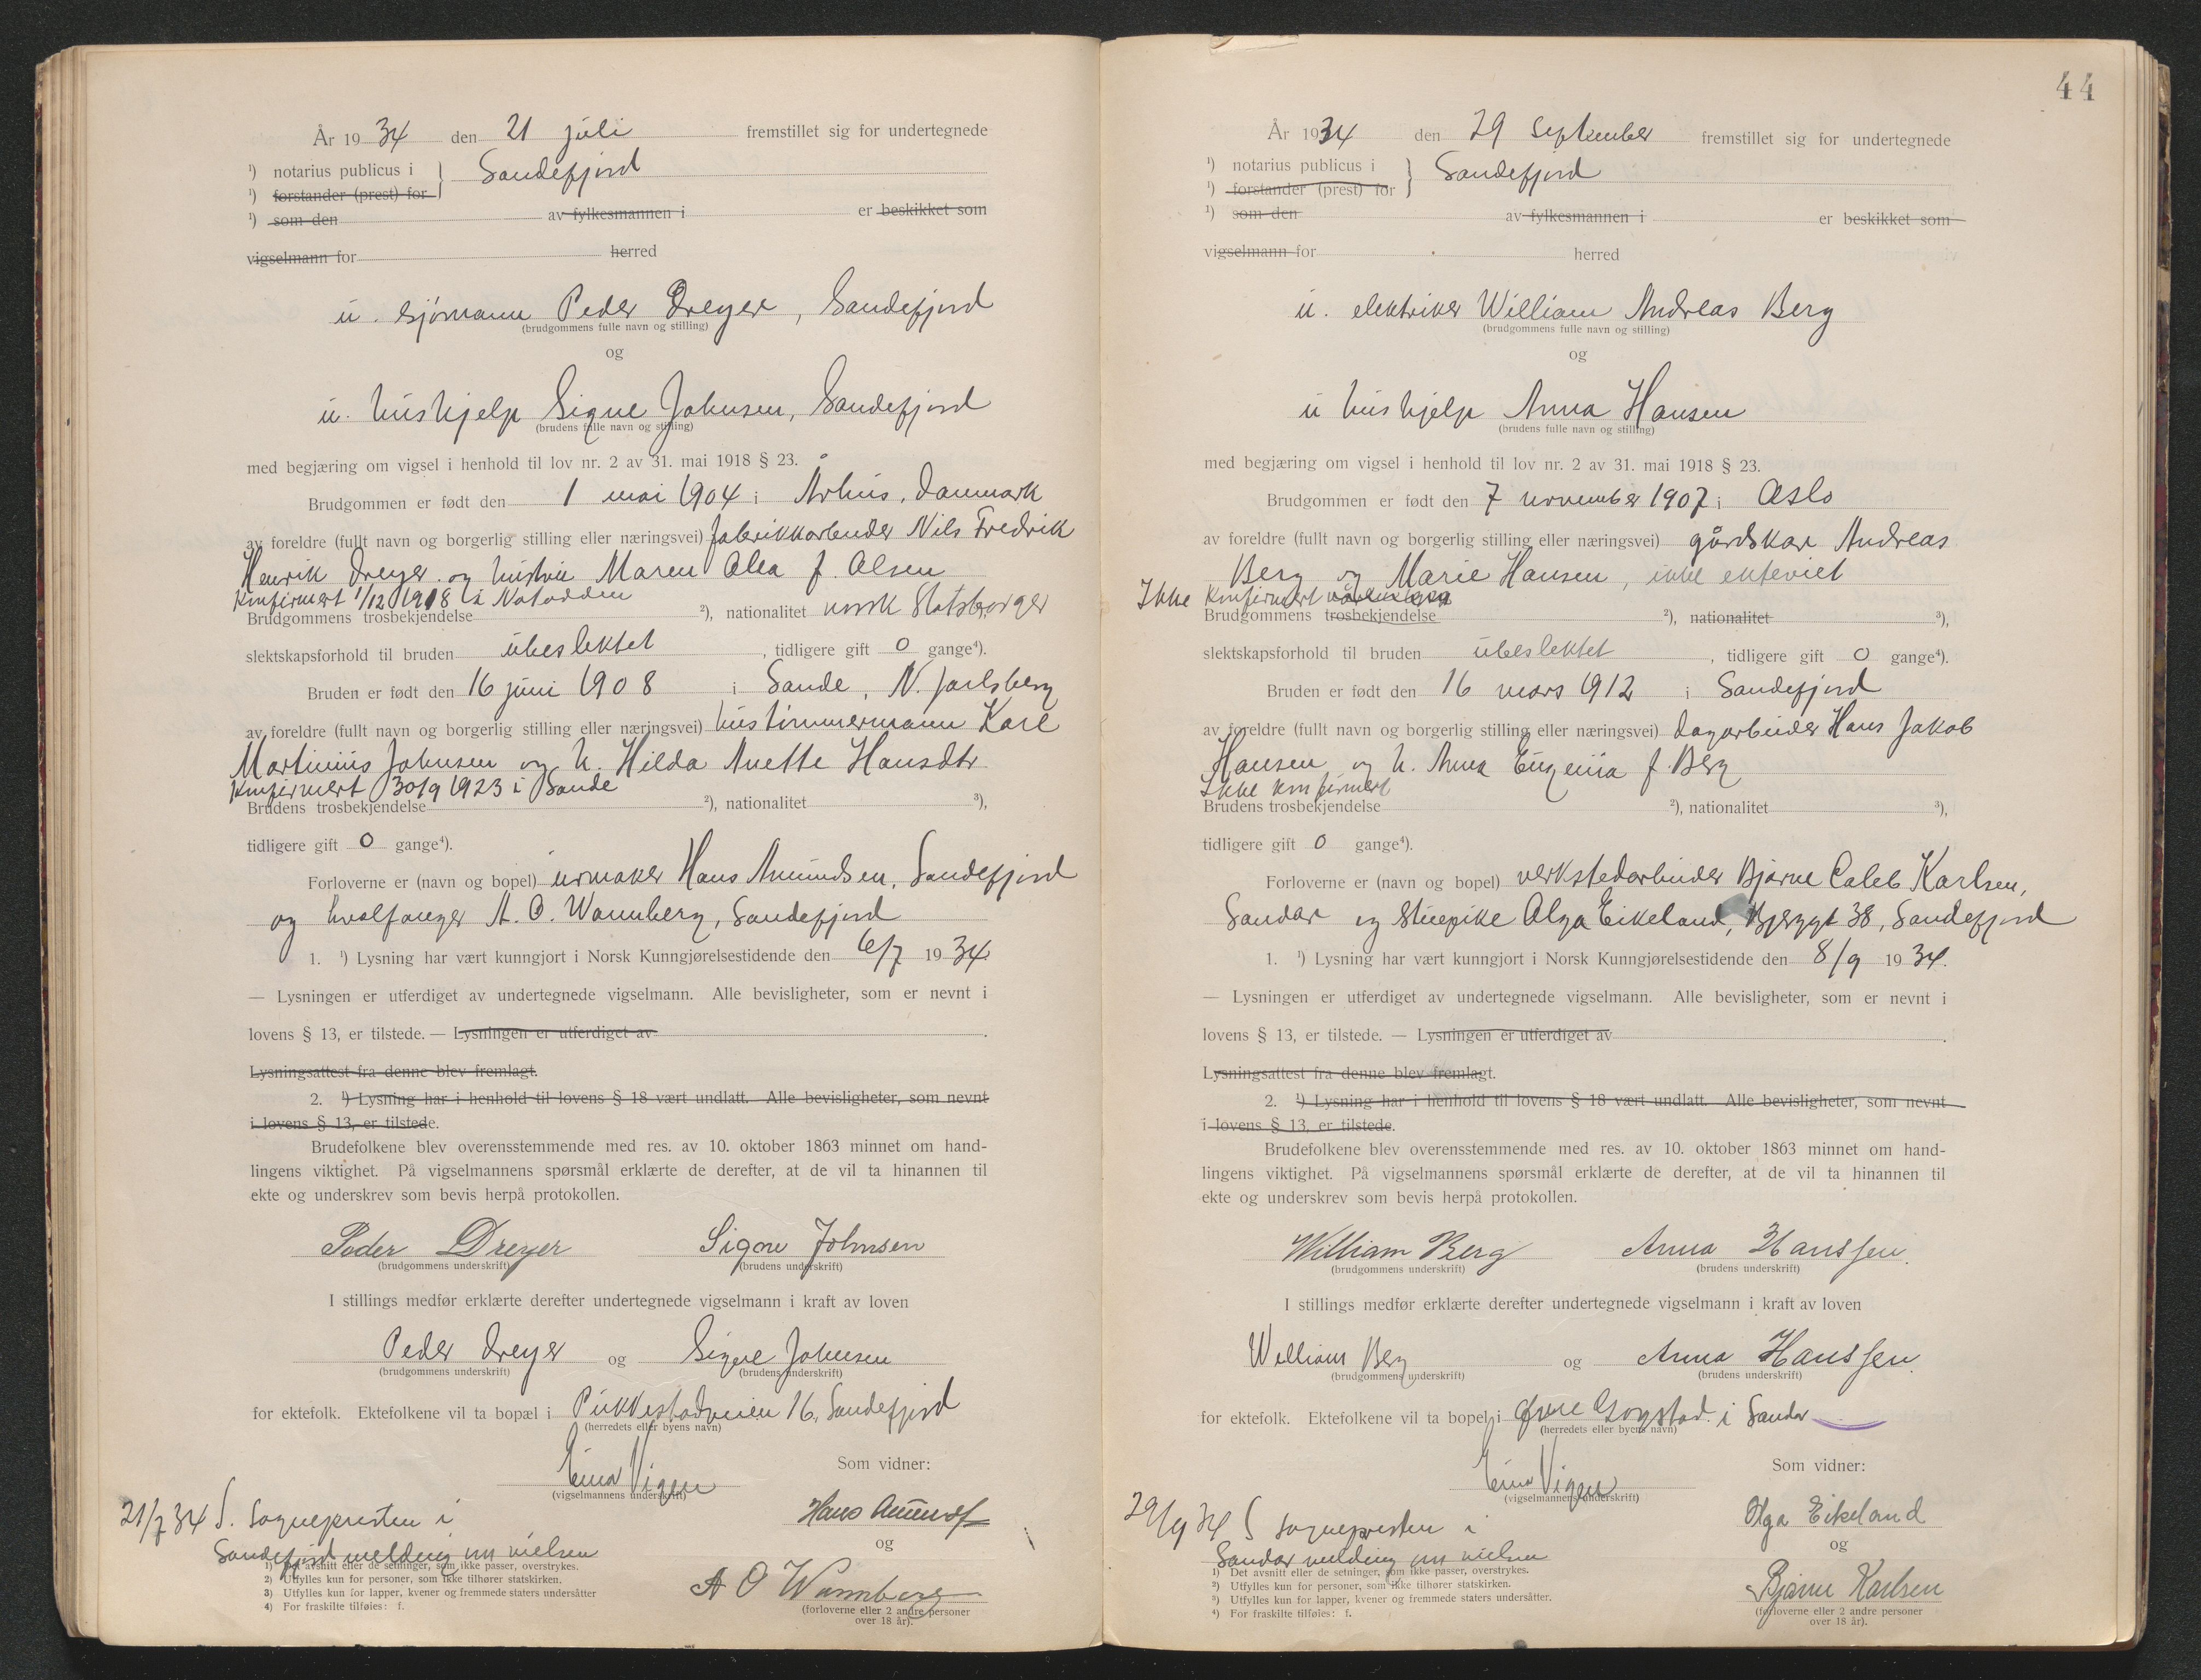 År 1934 den 21 juli fremstillet sig for undertegnede
¹) notarius publicus i } Sandefjord
¹) forstander (prest) for
¹) som den av fylkesmannen i er beskikket som
vigselmann for herred
u. sjömann Peder Dreyer, Sandefjord
(brudgommens fulle navn og stilling)
og
u. hushjelp Signe Johnsen, Sandefjord
(brudens fulle navn og stilling)
med begjæring om vigsel i henhold til lov nr. 2 av 31. mai 1918 § 23.
Brudgommen er født den 1 mai 1904 i Århus, Danmark
av foreldre (fullt navn og borgerlig stilling eller næringsvei) fabrikkarbeider Nils Fredrik
Henrik Dreyer og hustru Maren Olea f. Olsen
Konfirmert 1/12 1918 i Notodden
Brudgommens trosbekjendelse ²), nationalitet norsk statsborger
slektskapsforhold til bruden ubeslektet, tidligere gift 0 gange⁴).
Bruden er født den 16 juni 1908 i Sande, N. Jarlsberg
av foreldre (fullt navn og borgerlig stilling eller næringsvei) hustömmermann Karl
Martinius Johnsen og h. Hilda Anette Hansdtr
Konfirmert 30/9 1923 i Sande
Brudens trosbekjendelse ²), nationalitet ³),
tidligere gift 0 gange⁴).
Forloverne er (navn og bopel) urmaker Hans Amundsen, Sandefjord
og hvalfanger A. O. Wannberg, Sandefjord
1. ¹) Lysning har vært kunngjort i Norsk Kunngjørelsestidende den 6/7 1934
— Lysningen er utferdiget av undertegnede vigselmann. Alle bevisligheter, som er nevnt i
lovens § 13, er tilstede. — Lysningen er utferdiget av .
Lysningsattest fra denne blev fremlagt.
2. ¹) Lysning har i henhold til lovens § 18 vært undlatt. Alle bevisligheter, som nevnt
i lovens § 13, er tilstede.
Brudefolkene blev overensstemmende med res. av 10. oktober 1863 minnet om hand-
lingens viktighet. På vigselmannens spørsmål erklærte de derefter, at de vil ta hinannen til
ekte og underskrev som bevis herpå protokollen.
Peder Dreyer Signe Johnsen
(brudgommens underskrift) (brudens underskrift)
I stillings medfør erklærte derefter undertegnede vigselmann i kraft av loven
Peder Dreyer og Signe Johnsen
(brudgommens underskrift) (brudens underskrift)
for ektefolk. Ektefolkene vil ta bopæl i Pukkestadveien 16, Sandefjord
(herredets eller byens navn)
Som vidner:
Einar Vigen
(vigselmannens underskrift)
Hans Amunds
21/7 34 S. sogneprsten i
og
Sandefjord melding om vielsen
1) Det avsnitt eller de setninger, som ikke passer, overstrykes.
2) Utfylles kun for personer, som ikke tilhører statskirken.
3) Utfylles kun for lapper, kvener og fremmede staters undersåtter
4) For fraskilte tilføies: f.
A O Wannberg
(forloverne eller 2 andre personer
over 18 år).
44
År 1934 den 29 september fremstillet sig for undertegnede
¹) notarius publicus i } Sandefjord
¹) forstander (prest) for
¹) som den av fylkesmannen i er beskikket som
vigselmann for herred
u. elektriker William Andreas Berg
(brudgommens fulle navn og stilling)
og
u hushjelp Anna Hansen
(brudens fulle navn og stilling)
med begjæring om vigsel i henhold til lov nr. 2 av 31. mai 1918 § 23.
Brudgommen er født den 7 november 1907 i Oslo
av foreldre (fullt navn og borgerlig stilling eller næringsvei) gårdskar Andreas
Berg og Marie Hansen, ikke enteviet
Ikke Konfirmert
Brudgommens trosbekjendelse ²), nationalitet ³),
slektskapsforhold til bruden ubeslektet, tidligere gift 0 gange⁴).
Bruden er født den 16 mars 1912 i Sandefjord
av foreldre (fullt navn og borgerlig stilling eller næringsvei) dagarbeider Hans Jakob
Hansen og h. Anna Eugenia f. Berg
Ikke konfirmert
Brudens trosbekjendelse ²), nationalitet ³),
tidligere gift 0 gange⁴).
Forloverne er (navn og bopel) verkstedarbeider Bjarne Caleb Karlsen,
Sandar og stuepike Olga Eikeland, Bjerggt 38, Sandefjord
1. ¹) Lysning har vært kunngjort i Norsk Kunngjørelsestidende den 8/9 1934.
— Lysningen er utferdiget av undertegnede vigselmann. Alle bevisligheter, som er nevnt i
lovens § 13, er tilstede. — Lysningen er utferdiget av .
Lysningsattest fra denne blev fremlagt.
2. ¹) Lysning har i henhold til lovens § 18 vært undlatt. Alle bevisligheter, som nevnt
i lovens § 13, er tilstede.
Brudefolkene blev overensstemmende med res. av 10. oktober 1863 minnet om hand-
lingens viktighet. På vigselmannens spørsmål erklærte de derefter, at de vil ta hinannen til
ekte og underskrev som bevis herpå protokollen.
William Berg Anna Hanssen.
(brudgommens underskrift) (brudens underskrift)
I stillings medfør erklærte derefter undertegnede vigselmann i kraft av loven
William Berg og Anna Hanssen.
(brudgommens underskrift) (brudens underskrift)
for ektefolk. Ektefolkene vil ta bopel i Øvre Gogstad i Sandar
(herredets eller byens navn)
Som vidner:
Einar Vigen
(vigselmannens underskrift)
Olga Eikeland
29/9 34 S sognepresten i
og
Sandar melding om vielsen
1) Det avsnitt eller de setninger, som ikke passer, overstrykes.
²) Utfylles kun for personer, som ikke tilhører statskirken.
³) Utfylles kun for lapper, kvener og fremmede staters undersåtter.
⁴) For fraskilte tilføies: f.
Bjarne Karlsen
(forloverne eller 2 andre personer
over 18 år).